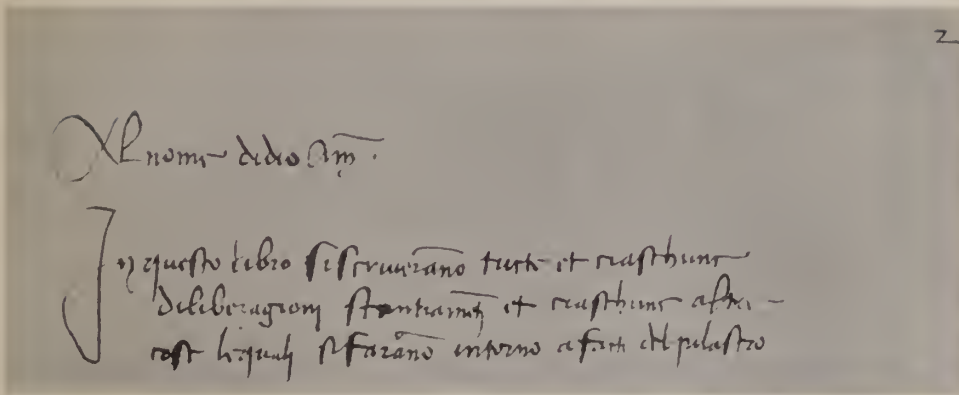 2
Al nome didio Am̄.
In questo libro si scriverāno tucte et ciaschune
diliberagioni stantiam̄ti et ciaschune altre
cose lequali si farāno intorno a facti del pilastro